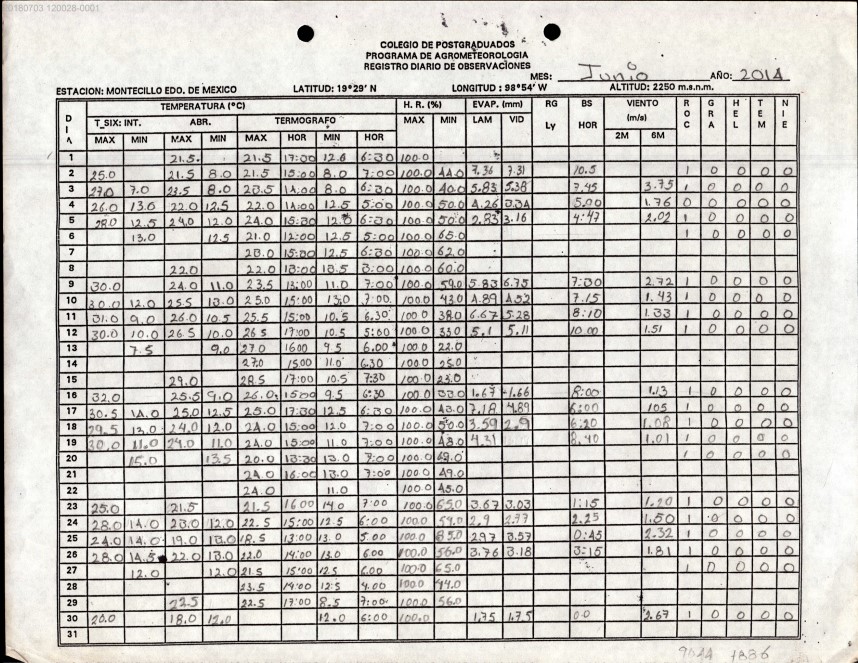 0160703 120028-0001
COLEGIO DE POSTGRADUADOS
PROGRAMA DE AGROMETEOROLOGIA
REGISTRO DIARIO DE OBSERVACIONES
MES: Junio AÑO: 2014
ESTACION: MONTECILLO EDO. DE MEXICO LATITUD: 19°29' N LONGITUD : 98°54' W ALTITUD: 2250 m.s.n.m.
DIA TEMPERATURA (°C) H. R. (%) EVAP. (mm) RG BS VIENTO ROC GRA HEL TEM NIE
T_SIX: INT. ABR. TERMOGRAFO MAX MIN LAM VID Ly HOR (m/s)
MAX MIN MAX MIN MAX HOR MIN HOR 2M 6M
1 21.5 21.5 17:00 12.6 6:30 100.0
2 25.0 21.5 8.0 21.5 15:00 8.0 7:00 100.0 44.0 7.36 7.31 10.5 1 0 0 0 0
3 27.0 7.0 23.5 8.0 23.5 14:00 8.0 6:30 100.0 40.0 5.83 5.38 7.45 3.75 1 0 0 0 0
4 26.0 13.0 22.0 12.5 22.0 14:00 12.5 5:00 100.0 50.0 4.26 3.34 5.00 1.76 0 0 0 0 0
5 28.0 12.5 24.0 12.0 24.0 15:30 12.0 6:30 100.0 50.0 2.83 3.16 4:47 2.02 1 0 0 0 0
6 13.0 12.5 21.0 12:00 12.5 5:00 100.0 65.0 1 0 0 0 0
7 23.0 15:30 12.5 6:30 100.0 62.0
8 22.0 22.0 13:00 13.5 3:00 100.0 60.0
9 30.0 24.0 11.0 23.5 13:00 11.0 7:00 100.0 59.0 5.83 6.75 7:30 2.72 1 0 0 0 0
10 30.0 12.0 25.5 13.0 25.0 15:00 13.0 7:00 100.0 43.0 4.89 4.52 7.15 1.43 1 0 0 0 0
11 31.0 9.0 26.0 10.5 25.5 15:00 10.5 6.30 100.0 38.0 6.67 5.28 8:10 1.33 1 0 0 0 0
12 30.0 10.0 26.5 10.0 26.5 17:00 10.5 5:00 100.0 33.0 5.1 5.11 10.00 1.51 1 0 0 0 0
13 7.5 9.0 27.0 1600 9.5 6.00 100.0 22.0
14 27.0 15:00 11.0 6.30 100.0 25.0
15 29.0 28.5 17:00 10.5 7:30 100.0 23.0
16 32.0 25.5 9.0 26.0 15:00 9.5 6:30 100.0 33.0 1.67 -1.66 8:00 1.13 1 0 0 0 0
17 30.5 14.0 25.0 12.5 25.0 17:30 12.5 6:30 100.0 43.0 7.18 4.89 6:00 105 1 0 0 0 0
18 29.5 13.0 24.0 12.0 24.0 15:00 12.0 7:00 100.0 50.0 3.59 2.9 6:20 1.08 1 0 0 0 0
19 30.0 11.0 24.0 11.0 24.0 15:00 11.0 7:00 100.0 43.0 4.31 8.40 1.01 1 0 0 0 0
20 15.0 13.5 20.0 13:30 13.0 7:00 100.0 69.0 1 0 0 0 0
21 24.0 16:00 13.0 7:00 100.0 49.0
22 24.0 11.0 100.0 45.0
23 25.0 21.5 21.5 16:00 14.0 7:00 100.0 65.0 3.67 3.03 1:15 1.20 1 0 0 0 0
24 28.0 14.0 23.0 12.0 22.5 15:00 12.5 6:00 100.0 59.0 2.9 2.77 2.25 1.50 1 0 0 0 0
25 24.0 14.0 19.0 13.0 18.5 13:00 13.0 5.00 100.0 85.0 2.97 3.57 0:45 2.32 1 0 0 0 0
26 28.0 14.5 22.0 13.0 22.0 14:00 13.0 6:00 100.0 56.0 3.76 3.18 3:15 1.81 1 0 0 0 0
27 12.0 12.0 21.5 15:00 12.5 6.00 100.0 65.0 1 0 0 0 0
28 23.5 14:00 12.5 4.00 100.0 44.0
29 22.5 22.5 17:00 8.5 7:00 100.0 56.0
30 20.0 18.0 12.0 12.0 6:00 100.0 1.75 1.75 0.0 2.67 1 0 0 0 0
31